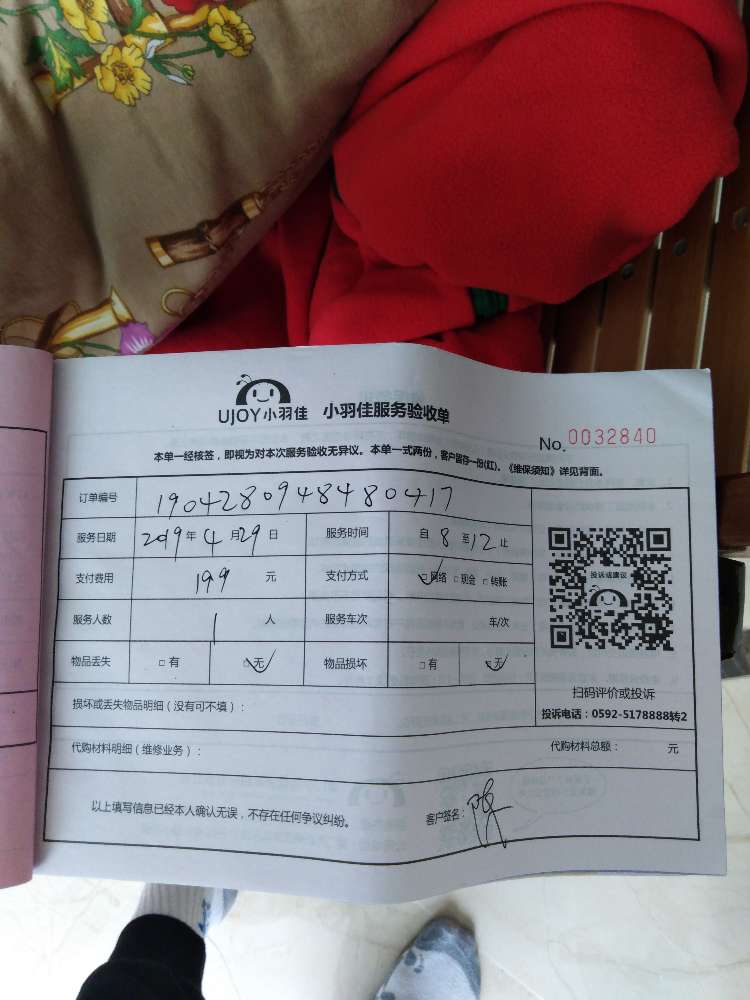 UJOY小羽佳 小羽佳服务验收单
No. 0032840
本单一经核签，即视为对本次服务验收无异议。本单一式两份，客户留存一份(红)。《维保须知》详见背面。
订单编号 1904280948480417
服务日期 2019年4月29日 服务时间 自8至12止
支付费用 199元 支付方式 ☑网络 □现金 □转账
服务人数 1人 服务车次 车/次
物品丢失 □有 ☑无 物品损坏 □有 ☑无
投诉或建议
扫码评价或投诉
投诉电话：0592-5178888转2
损坏或丢失物品明细（没有可不填）：
代购材料明细（维修业务）： 代购材料总额： 元
以上填写信息已经本人确认无误，不存在任何争议纠纷。 客户签名：